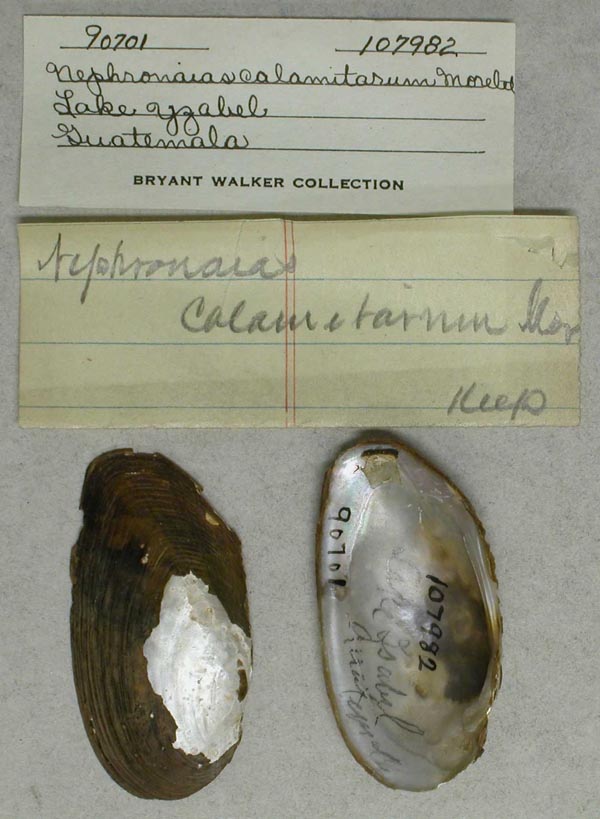 90701 107982
Nephronaias calamitarum Morelet
Lake Yzabel
Guatemala
BRYANT WALKER COLLECTION
Nephronaias
Calamitarum Mor
Keep
90701
107982
Lake Isabel